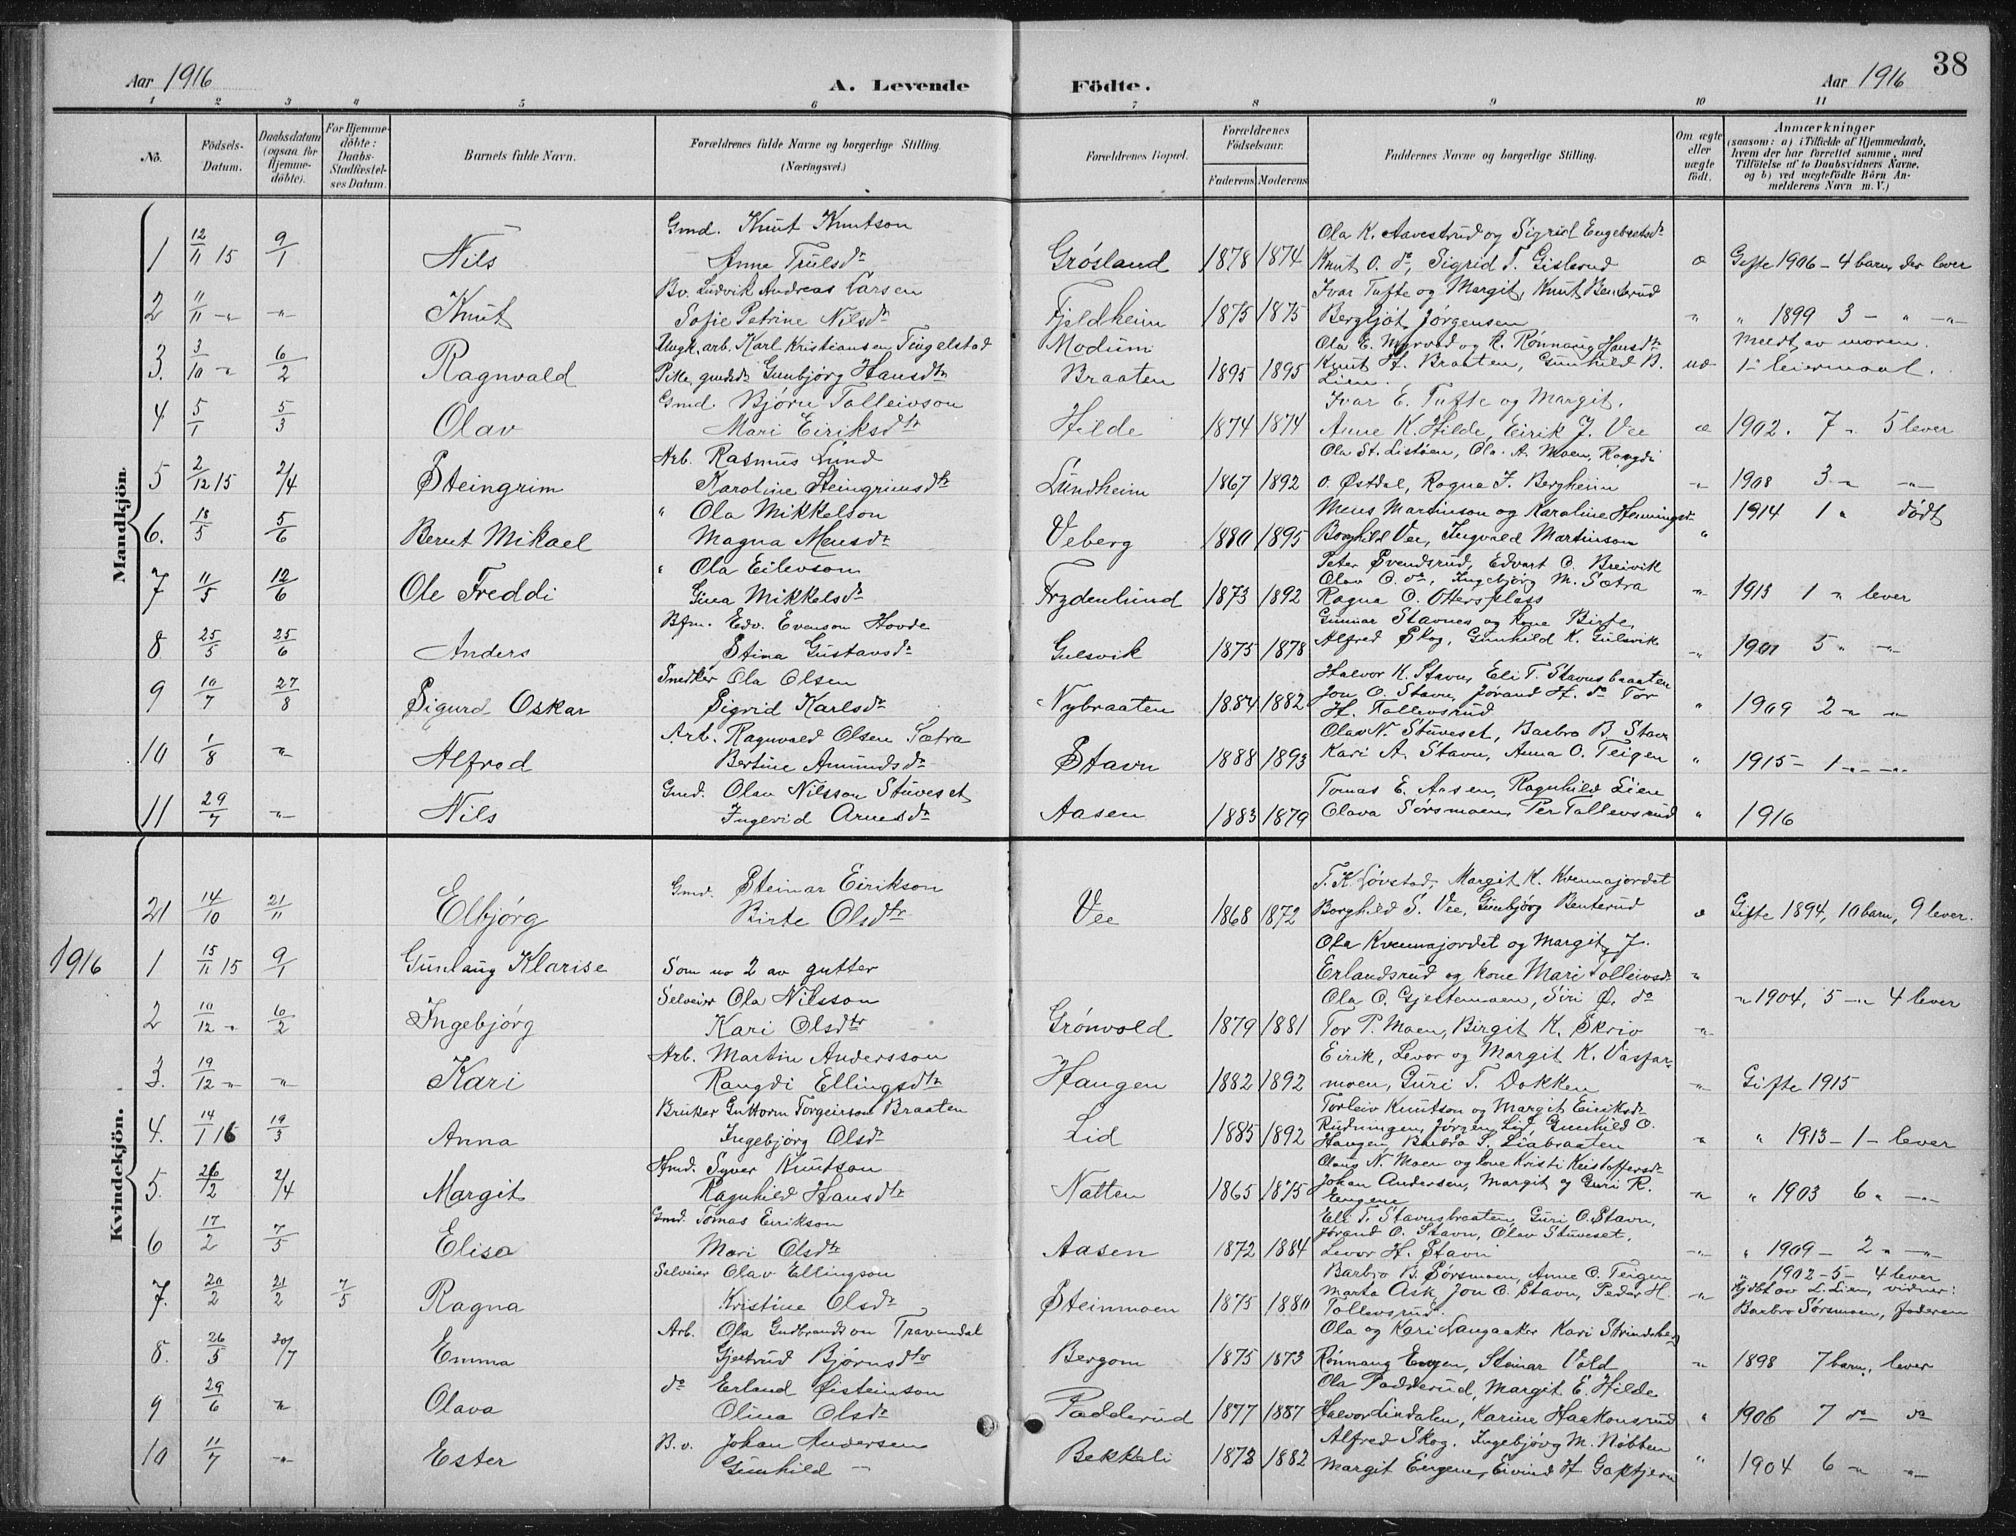 38
Aar 1916
A. Levende
Födte.
Aar 1916
1 2 3 4 5 6 7 8 9 10 11
No.
Födsels-Datum.
Daabsdatum (ogsaa for Hjemme-döbte).
For Hjemme-döbte: Daabs-Stadfæstel-ses Datum.
Barnets fulde Navn.
Forældrenes fulde Navne og borgerlige Stilling. (Næringsvei.)
Forældrenes Bopæl.
Forældrenes Födselsaar.
Faderens Moderens
Faddernes Navne og borgerlige Stilling.
Om ægte eller uægte födt.
Anmærkninger
(saasom: a) i Tilfælde af Hjemmedaab, hvem der har forrettet samme, med Tilföielse af to Daabsvidners Navne, og b) ved uægtefödte Börn An-melderens Navn m. V.)
Mandkjön.
Gmd. Knut Knutson
Ola K. Aavestrud og Sigrid Engebretsdr
1 12/11 15 9/1 Nils Anne Trulsdr Grósland 1878 1874 Knut O. do, Sigrid T. Gislerud æ Gifte 1906 – 4 barn, der lever
Bv. Ludvik Andreas Larsen
Ivar Tufte og Margit, Knut Benterud
2 11/11 -„- -„- Knut Sofie Petrine Nilsdr Fjeldheim 1875 1875 Bergljót Jørgensen „ „ 1899 3 – „ -„-
Ungk. arb. Karl Kristiansen Tingelstad Modum
Meldt av moren.
3. 3/10 „ 6/2 Ragnvald Pike, gmdsdr Gunbjörg Hansdtr Braaten 1895 1895 Knut H. Braaten, Gunhild B. Lien. uæ 1ste leiermaal.
Gmd. Bjórn Tolleivson
Ivar E. Tufte og Margit,
4 5/1 5/3 Olav Mari Eiriksdtr Hilde 1874 1874 Anne K. Hilde, Eirik J. Vee æ 1902. 7 „ 5 lever
Arb. Rasmus Lund
Ola St. Listóen, Ola A. Moen, Rangdi
5 2/12 15 2/4 Steingrim Karoline Steingrimsdtr Lundheim 1867 1892 O. Østdal, Ragna J. Bergheim „ 1908 3 „ -„-
„ Ola Mikkelson
Mens Martinson og Karoline Henningsdr
6. 18/5 5/6 Bernt Mikael Magna Mensdr Veberg 1880 1895 Borghild Vee, Ingvald Martinson „ 1914 1 „ dödt
„ Ola Eilevson
Peter Svendsrud, Edvart O. Breivik
Olav O. do, Ingebjörg M. Sætra
7 11/5 12/6 Ole Freddi Gina Mikkelsdr Frydenlund 1873 1892 Ragna O. Ottersplass „ 1913 1 „ lever
Bfm. Edv. Evenson Hovde
Gunnar Stavnes og kone Birte,
8 25/5 25/6 Anders Stina Gustavsdr Gulsvik 1875 1878 Alfred Skog, Gunhild K. Gulsvik „ 1901 5 „ -„-
Snedker Ola Olsen
Halvor K. Stavn, Eli T. Stavnsbraaten
9 10/7 27/8 Sigurd Oskar Sigrid Karlsdr Nybraaten 1884 1882 Jon O. Stavn, Jórand H. do Tor H. Tollevsrud „ 1909 2 „ „
Arb. Ragnvald Olsen Sætra
Olav N. Stuveset, Barbro B. Stavn
10 1/8 „ Alfred Bertine Amundsdr Stavn 1888 1893 Kari A. Stavn, Anna O. Teigen „ 1915 – 1 -„- -„-
Gmd. Olav Nilsson Stuveset
Tomas E. Aasen, Ragnhild Lien
11 29/7 -„- Nils Ingerid Arnesdr Aasen 1883 1879 Olava Sørsmoen, Per Tollevsrud „ 1916
Kvindekjön.
Gmd. Steinar Eirikson
T. K Lóvstad, Margit K. Kvennajordet
21 14/10 21/11 Elbjörg Birte Olsdtr Vee 1868 1872 Borghild S. Vee, Gunbjörg Benterud æ Gifte 1894, 10 barn, 9 lever.
Ola Kvennajordet og Margit, J.
1916 1 15/11 15 9/1 Gunlaug Klarise Som no 2 av gutter Erlandsrud og kone Mari Tolleivsdr „
Selveier Ola Nilsson
Ola O. Gjestemoen, Siri Ø. do
„ 1904, 5 -„- 4 lever
2 10/12 „ 6/2 Ingebjörg Kari Olsdtr Grónvold 1879 1881 Tor P. Moen, Birgit K. Skriv „
Arb. Martin Andersson
Eirik, Levor og Margit K. Vasfar-
3. 19/12 „ „ Kari Rangdi Ellingsdtr Haugen 1882 1892 moen, Guri T. Dokken „ Gifte 1915
Bruker Guttorm Torgeirson Braaten
Torleiv Knutson og Margit Eiriksdr
4. 14/1 16 19/3 Anna Ingebjörg Olsdr Lid 1885 1892 Rudningen, Jørgen Lid, Gunhild O. Haugen, Barbra S. Liabraaten „ „ 1913 – 1 – lever
Hmd. Syver Knutson
Olaus N. Moen og kone Kristi Kristoffersdr
5. 26/2 2/4 Margit Ragnhild Hansdtr Natten 1865 1875 Johan Andersen, Margit og Guri R. Engene „ „ 1903 6 „ -„-
Gmd. Tomas Eirikson
Eli T. Stavnsbraaten, Guri O. Stavn,
Jórand O. Stavn, Olav Stuveset,
6 17/2 7/5 Elisa Mari Olsdtr Aasen 1872 1884 Levor H. Stavn -„- „ 1909 – 2 „ -„-
Selveier Olav Ellingson
Barbro B. Sørsmoen, Anne O. Teigen
„ 1902 – 5 – 4 lever
7. 20/2 21/2 7/5 Ragna Kristine Olsdr Steinmoen 1875 1880 Marta Ask, Jon O. Stavn, Peder H. Tollevsrud. „ Hjdbt av L. Lien, vidner: Barbro Sørsmoen, faderen
Arb. Ola Gudbrandson Travendal
Ola og Kari Langaaker Kari Strindsberg
8. 26/5 30/7 Emma Gjertrud Bjórnsdtr Bergom 1875 1873 Rónnaug Engen, Steinar Vold „ 1898 7 barn, lever
do Erland Øisteinson
Ola Padderud, Margit E. Hilde
9 29/6 „ Olava Olina Olsdr Padderud 1877 1887 Halvor Lindalen, Karine Haakonsrud „ 1906 7 do do
B.v. Johan Andersen
Alfred Skog, Ingebjörg M. Nóbben
10 11/7 -„- Ester Gunhild – Bekkeli 1873 1882 Margit Engene, Eivind H. „ 1904 6 „ „